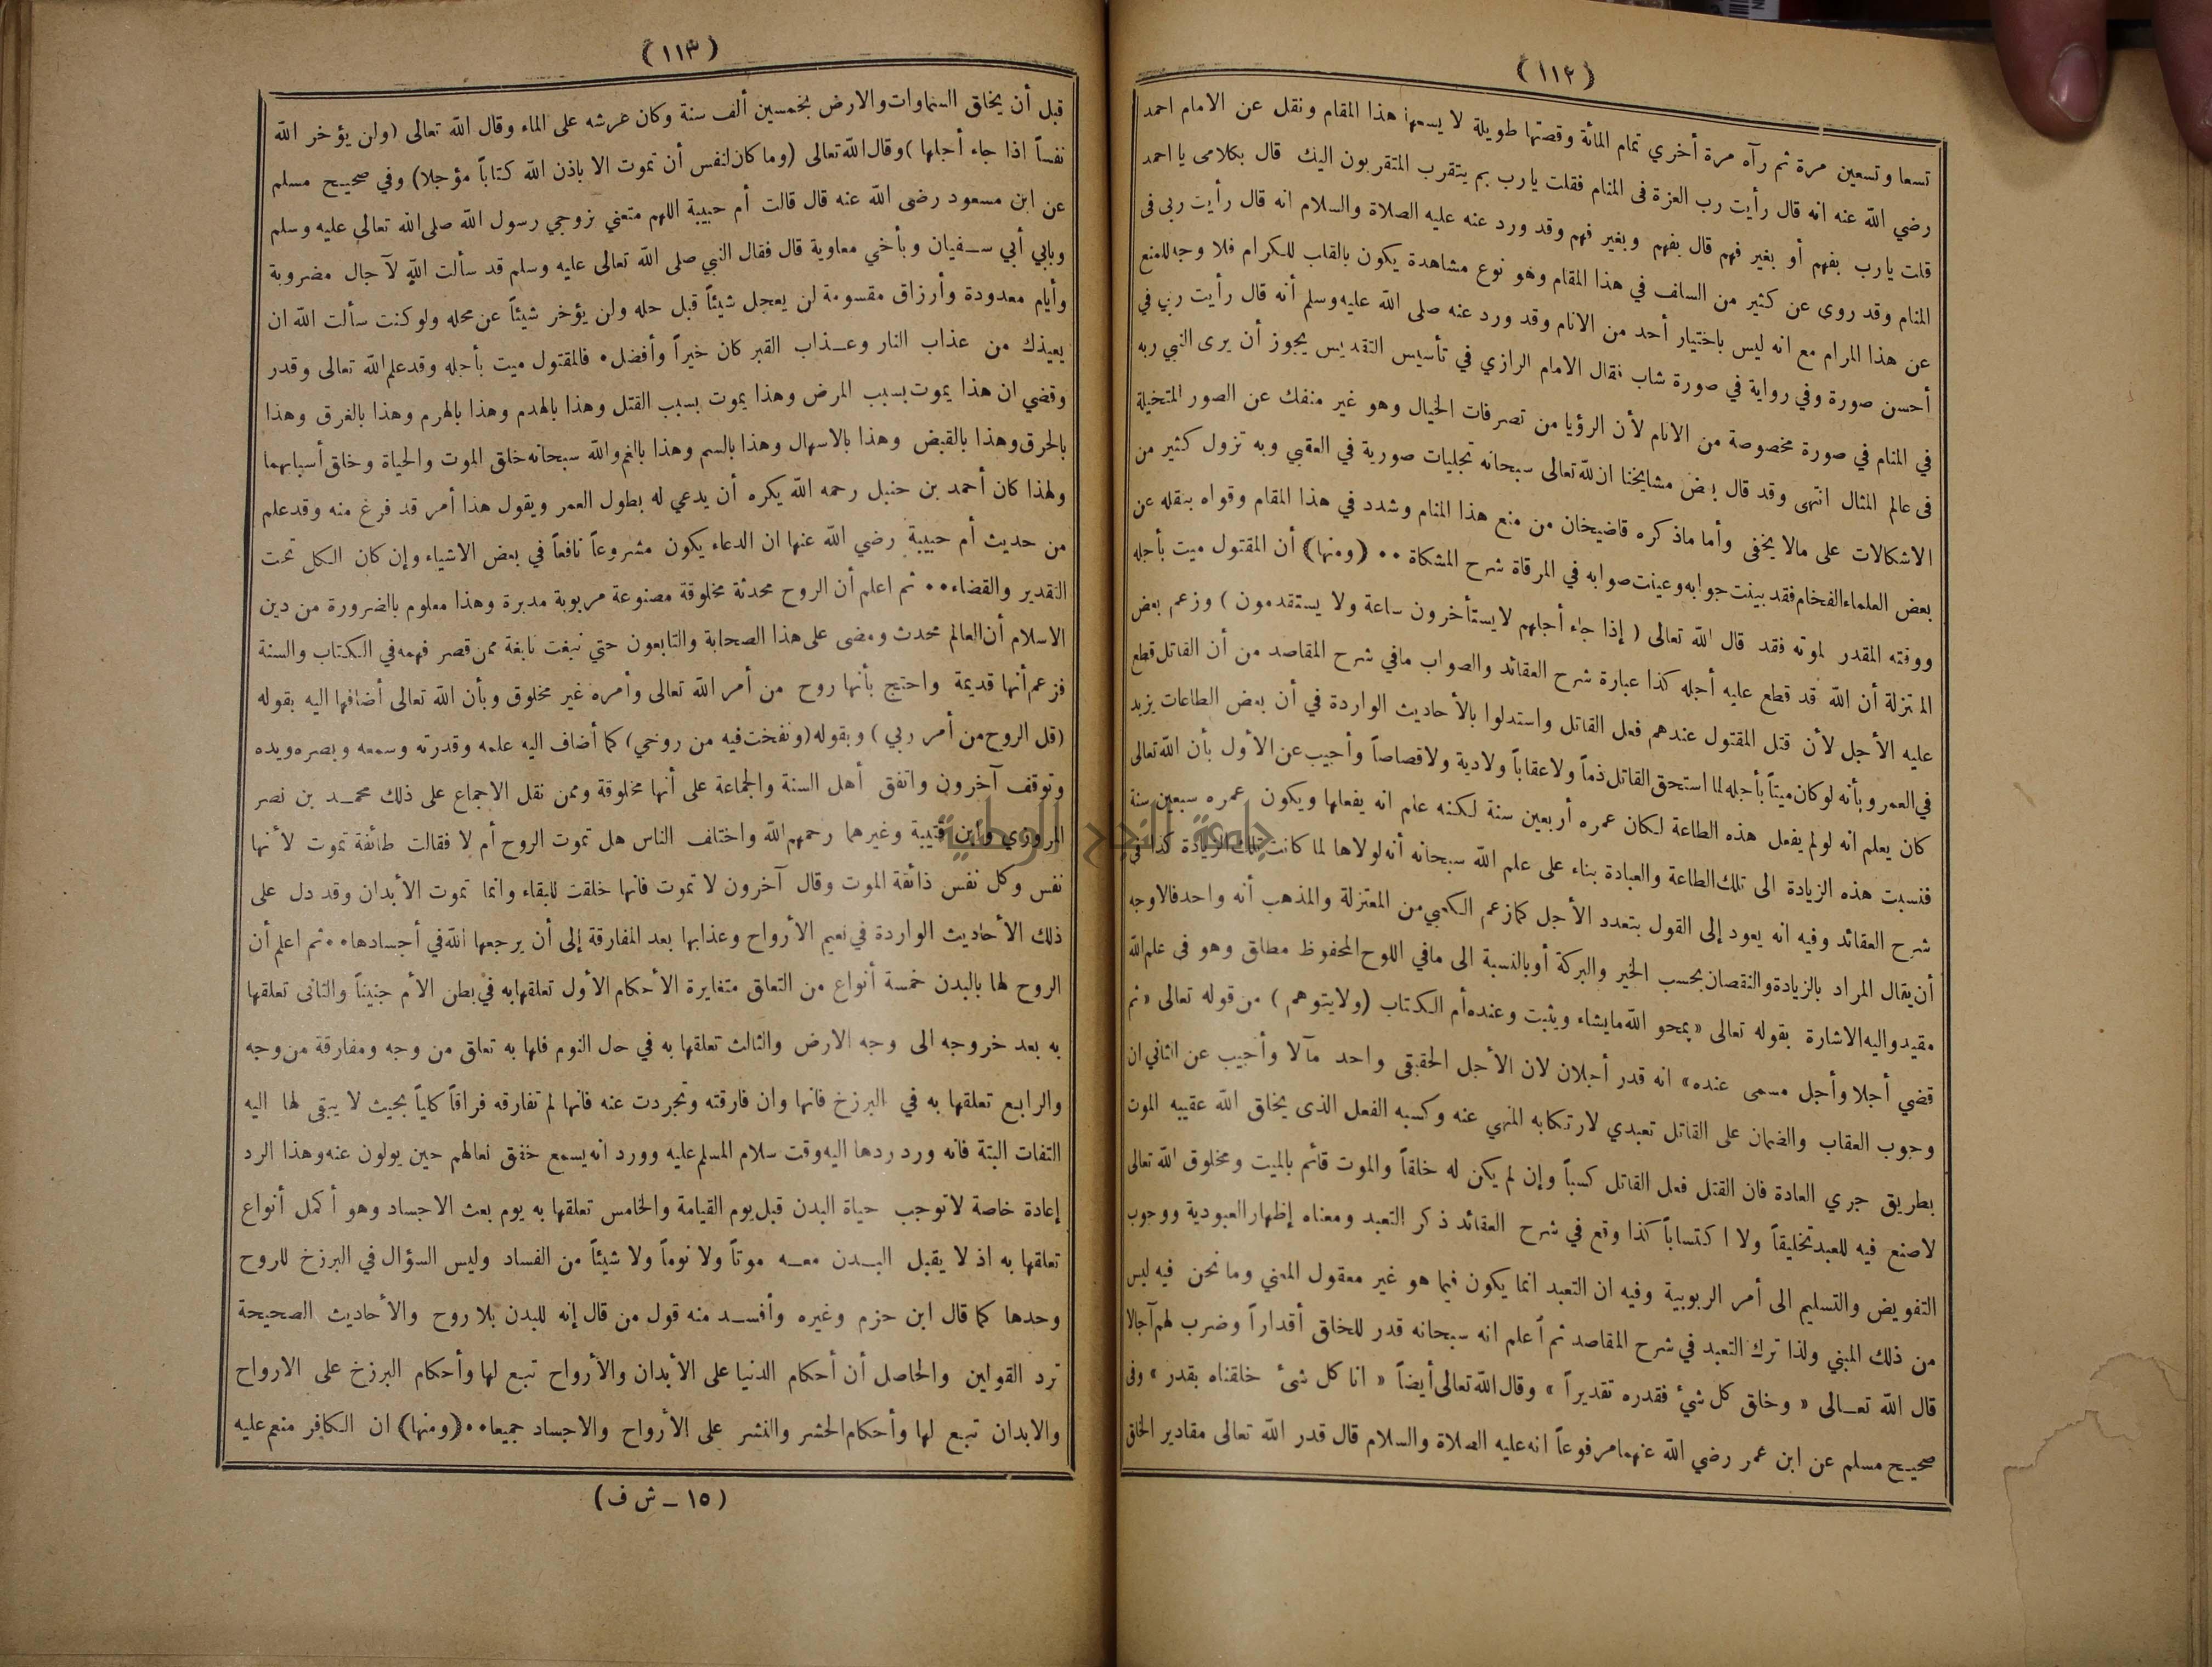 (١١٢)
تسعا وتسعين مرة ثم رآه مرة أخري تمام المائة وقصتها طويلة لا يسعها هذا المقام ونقل عن الامام احمد
رضي الله عنه انه قال رأيت رب العزة فى المنام فقلت يارب بم يتقرب المتقربون اليك قال بكلامى يا احمد
قلت يارب بفهم أو بغير فهم قال بفهم وبغير فهم وقد ورد عنه عليه الصلاة والسلام انه قال رأيت ربى فى
المنام وقد روى عن كثير من السلف في هذا المقام وهو نوع مشاهدة يكون بالقلب للكرام فلا وجه للمنع
عن هذا المرام مع انه ليس باختيار أحد من الانام وقد ورد عنه صلى الله عليه وسلم أنه قال رأيت ربي في
أحسن صورة وفي رواية في صورة شاب فقال الامام الرازي في تأسيس التقديس يجوز أن يرى النبي ربه
في المنام في صورة مخصوصة من الانام لأن الرؤيا من تصرفات الخيال وهو غير منفك عن الصور المتخيلة
فى عالم المثال انتهى وقد قال بعض مشايخنا ان لله تعالى سبحانه تجليات صورية في العقبي وبه تزول كثير من
الاشكالات على مالا يخفى وأما ماذكره قاضيخان من منع هذا المنام وشدد في هذا المقام وقواه بنقله عن
بعض العلماء الفخام فقد بينت جوابه وعينت صوابه في المرقاة شرح المشكاة •• (ومنها) أن المقتول ميت بأجله
ووقته المقدر لموته فقد قال الله تعالى ( إذا جاء أجلهم لايستأخرون ساعة ولا يستقدمون ) وزعم بعض
المعتزلة أن الله قد قطع عليه أجله كذا عبارة شرح العقائد والصواب مافي شرح المقاصد من أن القاتل قطع
عليه الأجل لأن قتل المقتول عندهم فعل القاتل واستدلوا بالأحاديث الواردة في أن بعض الطاعات يزيد
في العمر وبأنه لوكان ميتاً بأجله لما استحق القاتل ذماً ولا عقاباً ولا دية ولا قصاصاً وأجيب عن الأول بأن الله تعالى
كان يعلم انه لو لم يفعل هذه الطاعة لكان عمره أربعين سنة لكنه علم انه يفعلها ويكون عمره سبعين سنة
فنسبت هذه الزيادة الى تلك الطاعة والعبادة بناء على علم الله سبحانه أنه لولاها لما كانت تلك الزيادة كذا فى
شرح العقائد وفيه انه يعود إلى القول بتعدد الأجل كمازعم الكعبي من المعتزلة والمذهب أنه واحد فالاوجه
أن يقال المراد بالزيادة والنقصان بحسب الخير والبركة أو بالنسبة الى مافي اللوح المحفوظ مطلق وهو فى علم الله
مقيد واليه الاشارة بقوله تعالى « يمحو الله مايشاء ويثبت وعنده أم الكتاب (ولايتوهم ) من قوله تعالى « ثم
قضي أجلا وأجل مسمى عنده» انه قدر أجلان لان الأجل الحقيقى واحد مآلا وأجيب عن الثاني ان
وجوب العقاب والضمان على القاتل تعبدي لارتكابه المنهي عنه وكسبه الفعل الذى يخلق الله عقيبه الموت
بطريق جري العادة فان القتل فعل القاتل كسباً وإن لم يكن له خلقاً والموت قائم بالميت ومخلوق الله تعالى
لاصنع فيه للعبد تخليقاً ولا اكتساباً كذا وقع في شرح العقائد ذكر التعبد ومعناه إظهار العبودية ووجوب
التفويض والتسليم الى أمر الربوبية وفيه ان التعبد انما يكون فيما هو غير معقول المعني وما نحن فيه ليس
من ذلك المبني ولذا ترك التعبد في شرح المقاصد ثم أعلم انه سبحانه قدر للخلق أقداراً وضرب لهم آجالا
قال الله تعـالى « وخلق كل شيء فقدره تقديراً » وقال الله تعالى أيضاً « انا كل شىء خلقناه بقدر » وفى
صحيح مسلم عن ابن عمر رضي الله عنهما مرفوعاً انه عليه الصلاة والسلام قال قدر الله تعالى مقادير الخلق
(١١٣)
قبل أن يخلق السماوات والارض بخمسين ألف سنة وكان عرشه على الماء وقال الله تعالى (ولن يؤخر الله
نفساً اذا جاء أجلها )وقال الله تعالى (وما كان لنفس أن تموت الا باذن الله كتاباً مؤجلا) وفي صحيح مسلم
عن ابن مسعود رضى الله عنه قال قالت أم حبيبة اللهم متعني بزوجي رسول الله صلى الله تعالى عليه وسلم
وبابي أبي سـفيان وبأخي معاوية قال فقال النبي صلى الله تعالى عليه وسلم قد سألت الله لآجال مضروبة
وأيام معدودة وأرزاق مقسومة لن يعجل شيئاً قبل حله ولن يؤخر شيئاً عن محله ولو كنت سألت الله ان
يعيذك من عذاب النار وعـذاب القبر كان خيراً وأفضل• فالمقتول ميت بأجله وقد علم الله تعالى وقدر
وقضي ان هذا يموت بسبب المرض وهذا يموت بسبب القتل وهذا بالهدم وهذا بالهرم وهذا بالغرق وهذا
بالحرق وهذا بالقبض وهذا بالاسهال وهذا بالسم وهذا بالغم والله سبحانه خلق الموت والحياة وخلق أسبابهما
ولهذا كان أحمد بن حنبل رحمه الله يكره أن يدعي له بطول العمر ويقول هذا أمر قد فرغ منه وقد علم
من حديث أم حبيبة رضي الله عنها ان الدعاء يكون مشروعاً نافعاً في بعض الاشياء وإن كان الكل تحت
التقدير والقضاء•• ثم اعلم أن الروح محدثة مخلوقة مصنوعة مربوبة مدبرة وهذا معلوم بالضرورة من دين
الاسلام أن العالم محدث ومضى على هذا الصحابة والتابعون حتي نبغت نابغة ممن قصر فهمه في الكتاب والسنة
فزعم أنها قديمة واحتج بأنها روح من أمر الله تعالى وأمره غير مخلوق وبأن الله تعالى أضافها اليه بقوله
(قل الروح من أمر ربي ) وبقوله (ونفخت فيه من روحي) كما أضاف اليه علمه وقدرته وسمعه وبصره ويده
وتوقف آخرون واتفق أهل السنة والجماعة على أنها مخلوقة وممن نقل الاجماع على ذلك محمـد بن نصر
المروزي وابن قتيبة وغيرهما رحمهم الله واختلف الناس هل تموت الروح أم لا فقالت طائفة تموت لأنها
نفس وكل نفس ذائقة الموت وقال آخرون لا تموت فانها خلقت للبقاء وانما تموت الأبدان وقد دل على
ذلك الأحاديث الواردة في نعيم الأرواح وعذابها بعد المفارقة إلى أن يرجعها الله في أجسادها•• ثم اعلم أن
الروح لها بالبدن خمسة أنواع من التعلق متغايرة الأحكام الأول تعلقها به في بطن الأم جنيناً والثانى تعلقها
به بعد خروجه الى وجه الارض والثالث تعلقها به في حال النوم فلها به تعلق من وجه ومفارقة من وجه
والرابع تعلقها به في البرزخ فانها وان فارقته وتجردت عنه فانها لم تفارقه فراقاً كلياً بحيث لا يبقى لها اليه
التفات البتة فانه ورد ردها اليه وقت سلام المسلم عليه وورد انه يسمع خفق نعالهم حين يولون عنه وهذا الرد
إعادة خاصة لاتوجب حياة البدن قبل يوم القيامة والخامس تعلقها به يوم بعث الاجساد وهو أكمل أنواع
تعلقها به اذ لا يقبل البـدن معـه موتاً ولا نوماً ولا شيئاً من الفساد وليس السؤال في البرزخ للروح
وحدها كما قال ابن حزم وغيره وأفسـد منه قول من قال إنه للبدن بلا روح والأحاديث الصحيحة
ترد القولين والحاصل أن أحكام الدنيا على الأبدان والأرواح تبع لها وأحكام البرزخ على الارواح
والابدان تبع لها وأحكام الحشر والنشر على الأرواح والاجساد جميعا••(ومنها) ان الكافر منعم عليه
(١٥ ــ ش ف)
جامعة النجاح الوطنية